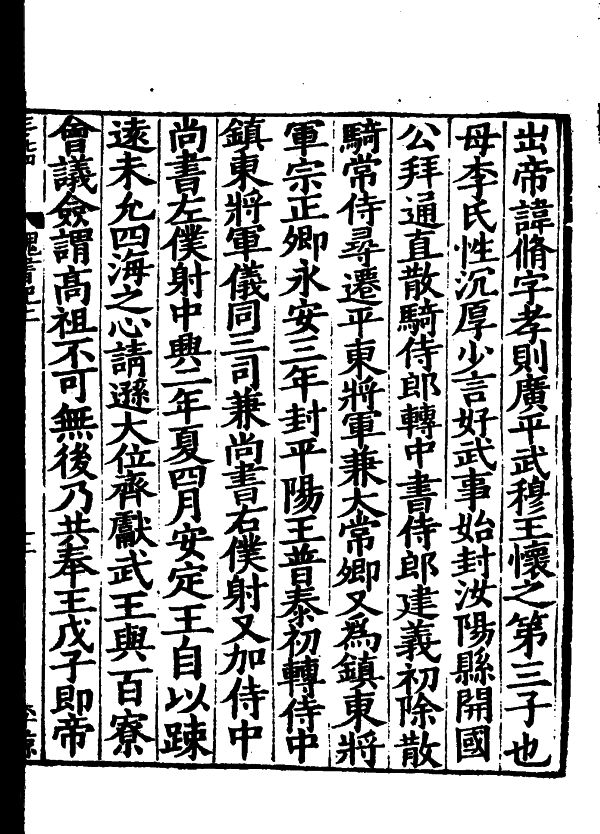 出帝諱脩字孝則廣平武穆王懷之第三子也
母李氏性沉厚少言好武事始封汝陽縣開國
公拜通直散騎侍郎轉中書侍郎建義初除散
騎常侍尋遷平東將軍兼太常卿又爲鎮東將
軍宗正卿永安三年封平陽王普泰初轉侍中
鎮東將軍儀同三司兼尚書右僕射又加侍中
尚書左僕射中興二年夏四月安定王自以踈
遠未允四海之心請遜大位齊獻武王與百寮
會議僉謂高祖不可無後乃共奉王戊子即帝